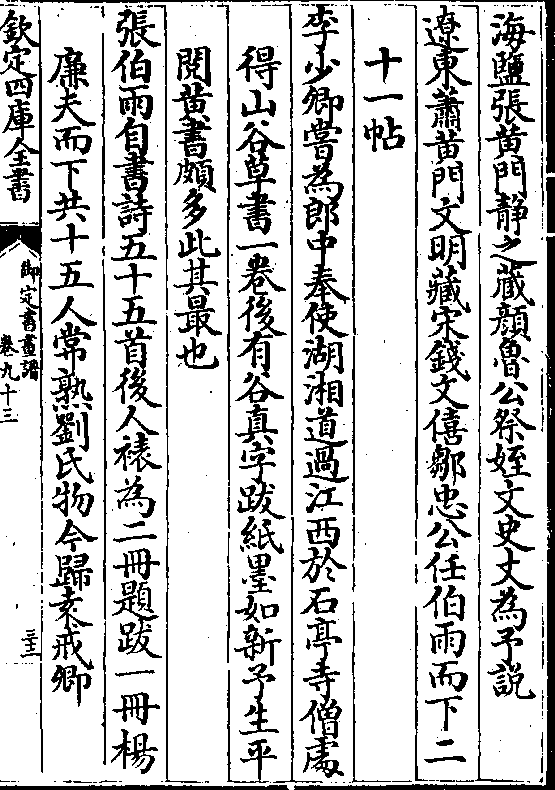 海鹽張黄門靜之藏顔魯公祭姪文史丈為予説
遼東蕭黄門文明藏宋錢文僖鄒忠公任伯雨而下二
十一帖
李少卿嘗為郎中奉使湖湘道過江西於石亭寺僧處
得山谷草書一巻後有谷真字跋紙墨如新予生平
閱黄書頗多此其最也
張伯雨自書詩五十五首後人裱為二冊題跋一冊楊
廉夫而下共十五人常熟劉氏物今歸袁戒卿
欽定四庫全書
御定書畫譜
卷九十三
三十三